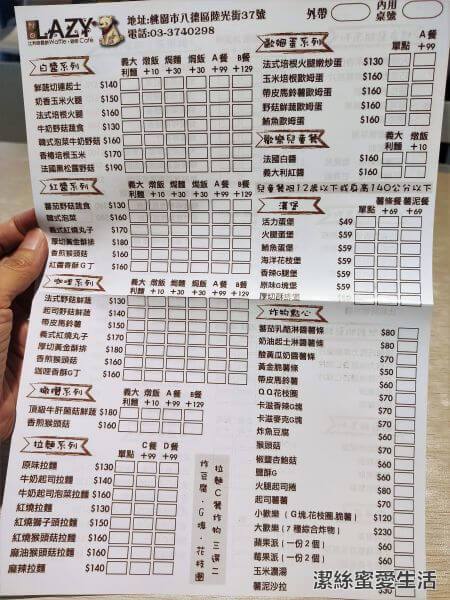 LAZY
比利時鬆餅Waffle·咖啡Cafe
地址:桃園市八德區陸光街37號
電話:03-3740298
外帶
內用
桌號
白醬系列
義大利麵 燉飯+10 焗麵+30 焗飯+30 A餐+99 B餐+129
鮮蔬切達起士 $140
奶香玉米火腿
法式培根火腿
牛奶野菇蔬食 $130
韓式泡菜牛奶野菇 $160
香椿培根玉米 $170
法國黑松露野菇 $190
紅醬系列
義大利麵 燉飯+10 焗麵+30 焗飯+30 A餐+99 B餐+129
蕃茄野菇蔬食 $130
韓式泡菜 $160
義式紅燒丸子 $170
厚切黃金酥排
香煎猴頭菇 $160
紅醬香酥G丁 $160
咖哩系列
義大利麵 燉飯+10 焗麵+30 焗飯+30 A餐+99 B餐+129
法式野菇鮮蔬 $130
起司野菇鮮蔬
帶皮馬鈴薯 $150
義式紅燒丸子
厚切黃金酥排 $180
香煎猴頭菇 $160
咖哩香酥G丁 $160
橄欖系列
義大利麵 燉飯+10 A餐+99 B餐+129
頂級牛肝菌菇鮮蔬 $180
香煎猴頭菇 $160
拉麵系列
單點 C餐+99 D餐+99
原味拉麵 $130
牛奶起司拉麵
牛奶起司泡菜拉麵 $160
紅燒拉麵 $130
紅燒獅子頭拉麵 $150
紅燒猴頭菇拉麵 $160
麻油猴頭菇拉麵 $160
麻辣拉麵 $140
拉麵C餐炸物三選二
炸豆腐·G塊·花枝圈
歐姆蛋系列
單點 A餐+99
法式培根火腿嫩炒蛋 $130
玉米培根歐姆蛋 $160
帶皮馬鈴薯歐姆蛋 $160
野菇鮮蔬歐姆蛋 $160
鮪魚歐姆蛋 $130
歡樂兒童餐
單點 燉飯+10
法國白醬 $160
義大利紅醬 $160
兒童餐限12歲以下或身高140公分以下
漢堡
單點 薯條餐+69 薯泥餐+69
活力蛋堡 $49
火腿蛋堡 $59
鮪魚蛋堡 $59
海洋花枝堡 $59
香辣G腿堡 $59
原味G塊堡 $59
厚切酥排堡
炸物點心
蕃茄乳酪淋醬薯條 $80
奶油起士淋醬薯條
酸黃瓜奶醬薯條 $70
黃金脆薯條 $50
帶皮馬鈴薯 $60
QQ花枝圈 $70
卡滋香辣G塊 $60
卡滋麥克G塊 $60
炸魚豆腐 $60
猴頭菇 $70
椒鹽杏鮑菇 $60
鹽酥G $60
火腿起司捲 $60
起司薯薯 $60
小歡樂（G塊.花枝圈.脆薯） $120
大歡樂（7種綜合炸物） $230
蘋果派（一份2個） $60
莓果派（一份2個） $60
玉米濃湯
薯泥沙拉
潔絲蜜愛生活